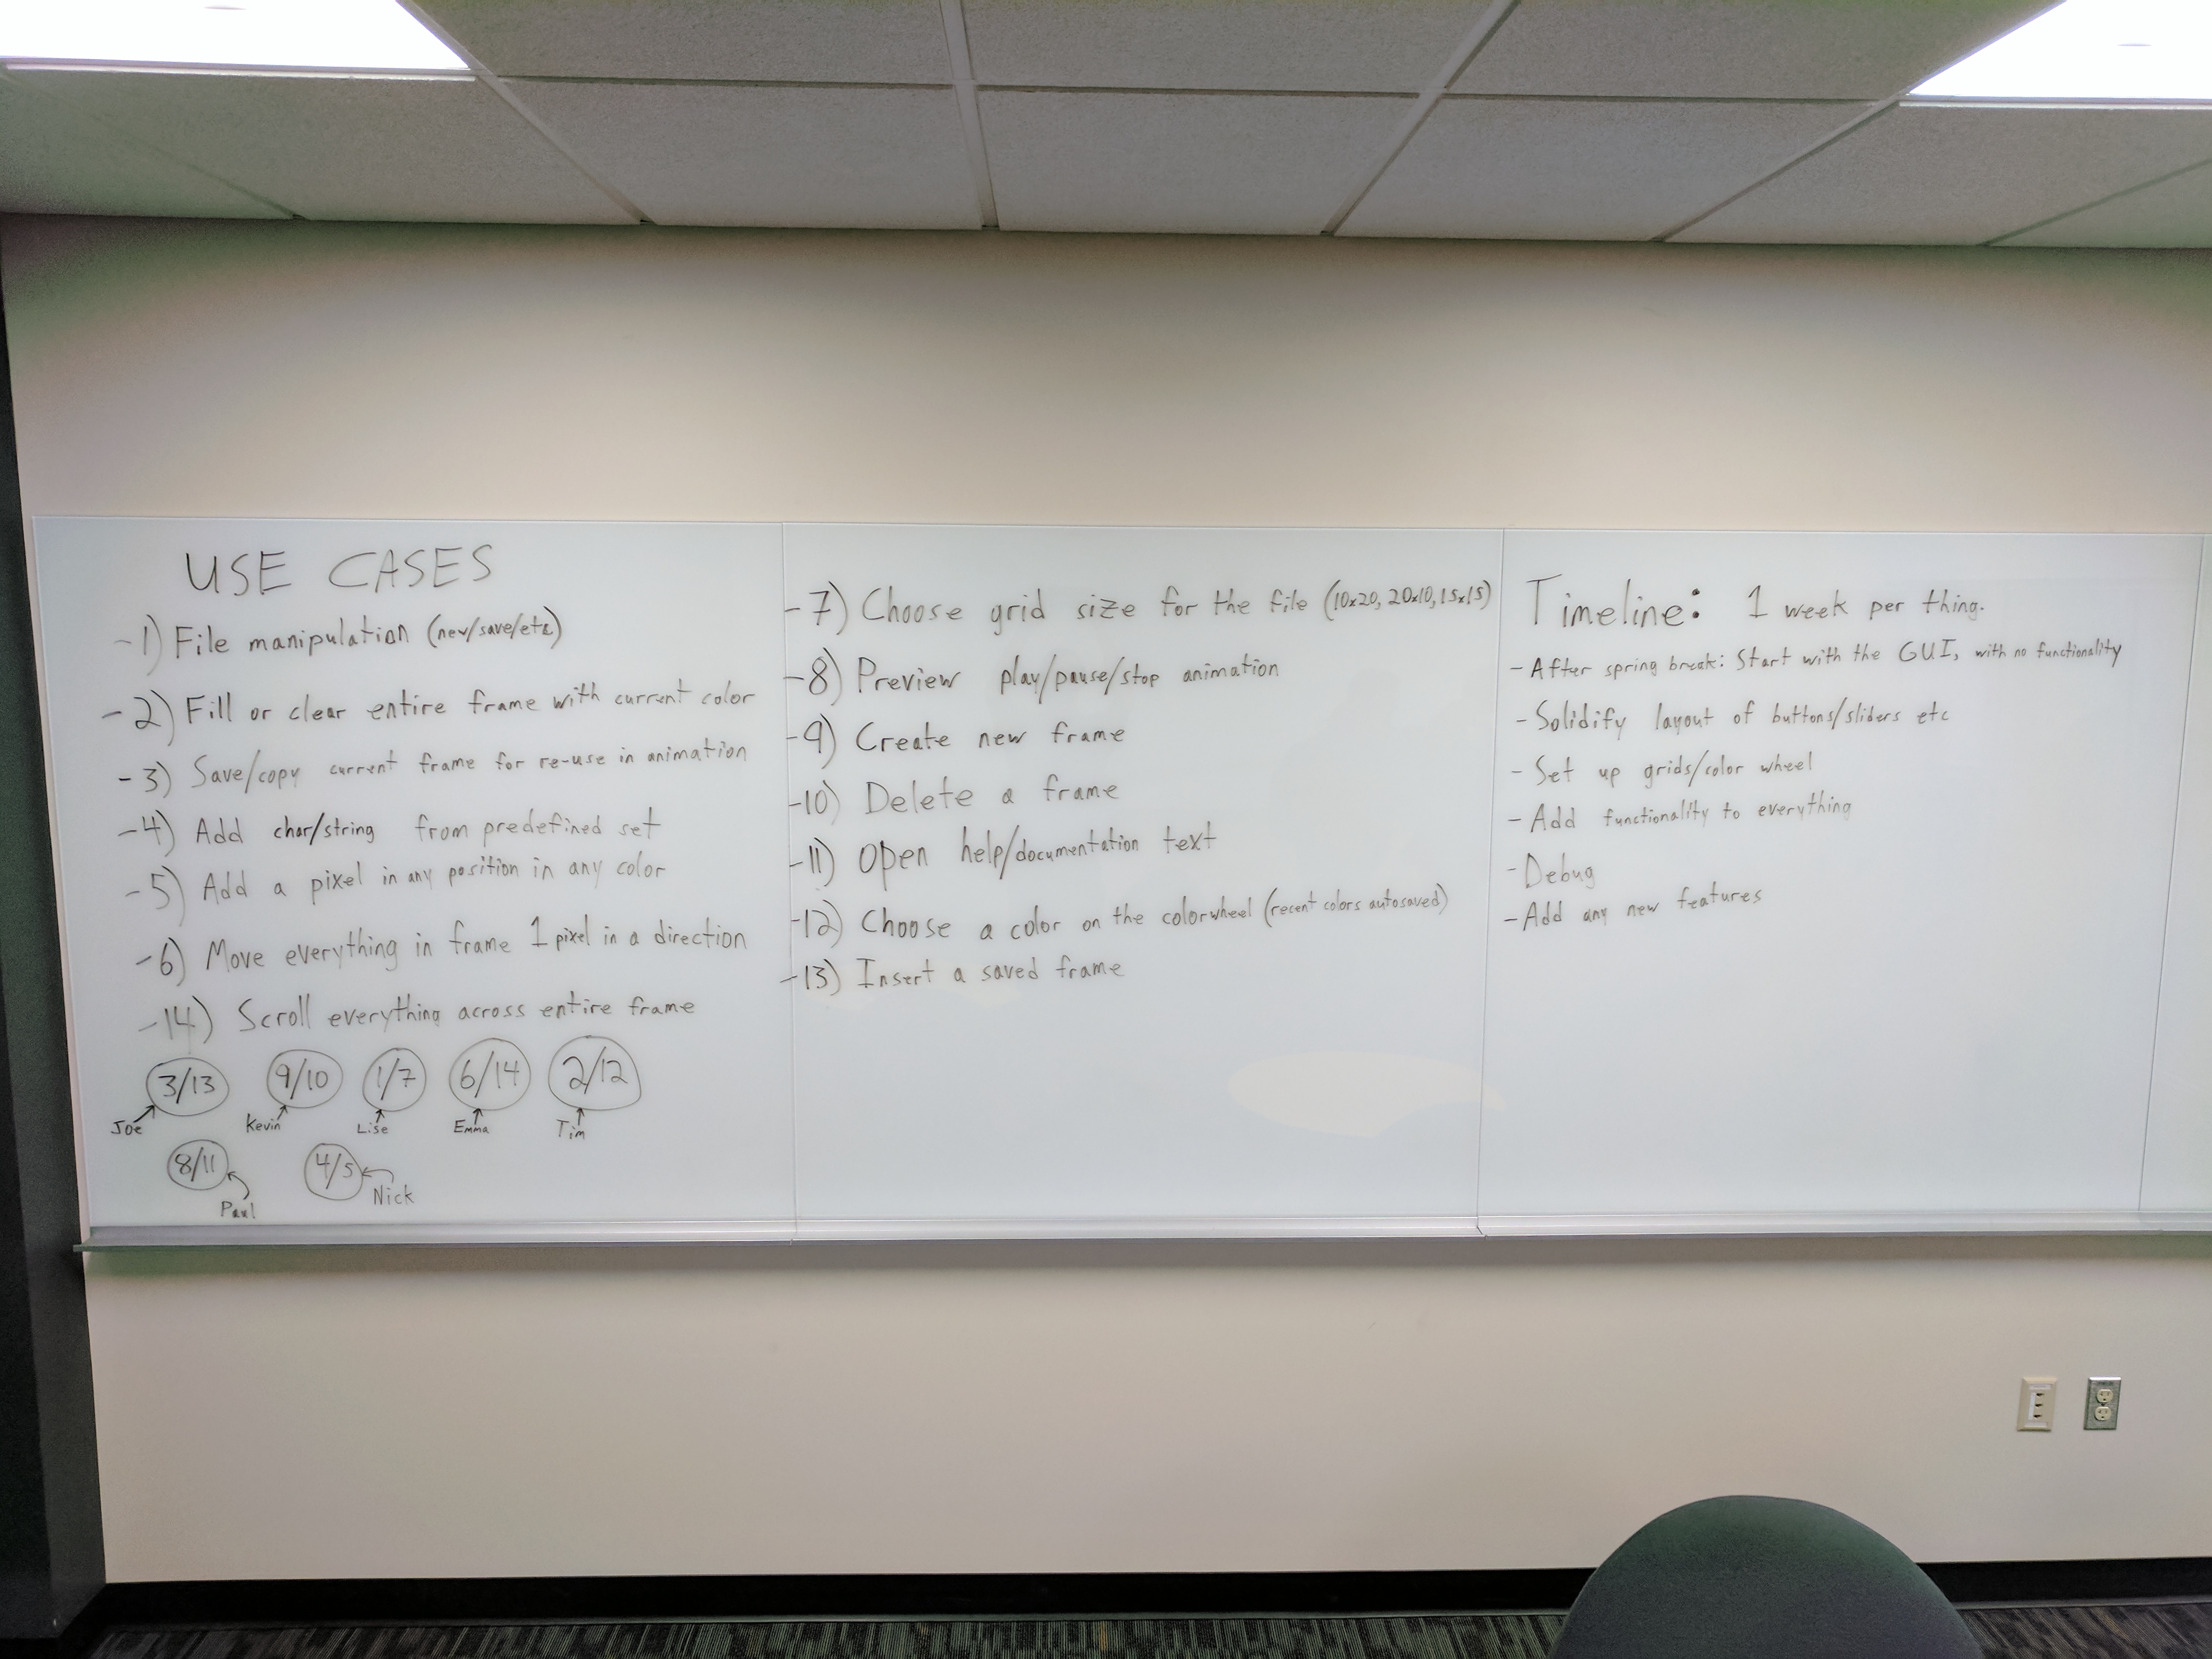 USE CASES
-1) File manipulation (new/save/etc)
-2) Fill or clear entire frame with current color
-3) Save/copy current frame for re-use in animation
-4) Add char/string from predefined set
-5) Add a pixel in any position in any color
-6) Move everything in frame 1 pixel in a direction
-14) Scroll everything across entire frame
3/13 9/10 1/7 6/14 2/12
Joe Kevin Lise Emma Tim
8/11 4/5
Paul Nick
-7) Choose grid size for the file (10x20, 20x10, 15x15)
-8) Preview play/pause/stop animation
-9) Create new frame
-10) Delete a frame
-11) Open help/documentation text
-12) Choose a color on the colorwheel (recent colors autosaved)
-13) Insert a saved frame
Timeline: 1 week per thing.
-After spring break: Start with the GUI, with no functionality
-Solidify layout of buttons/sliders etc
-Set up grids/color wheel
-Add functionality to everything
-Debug
-Add any new features